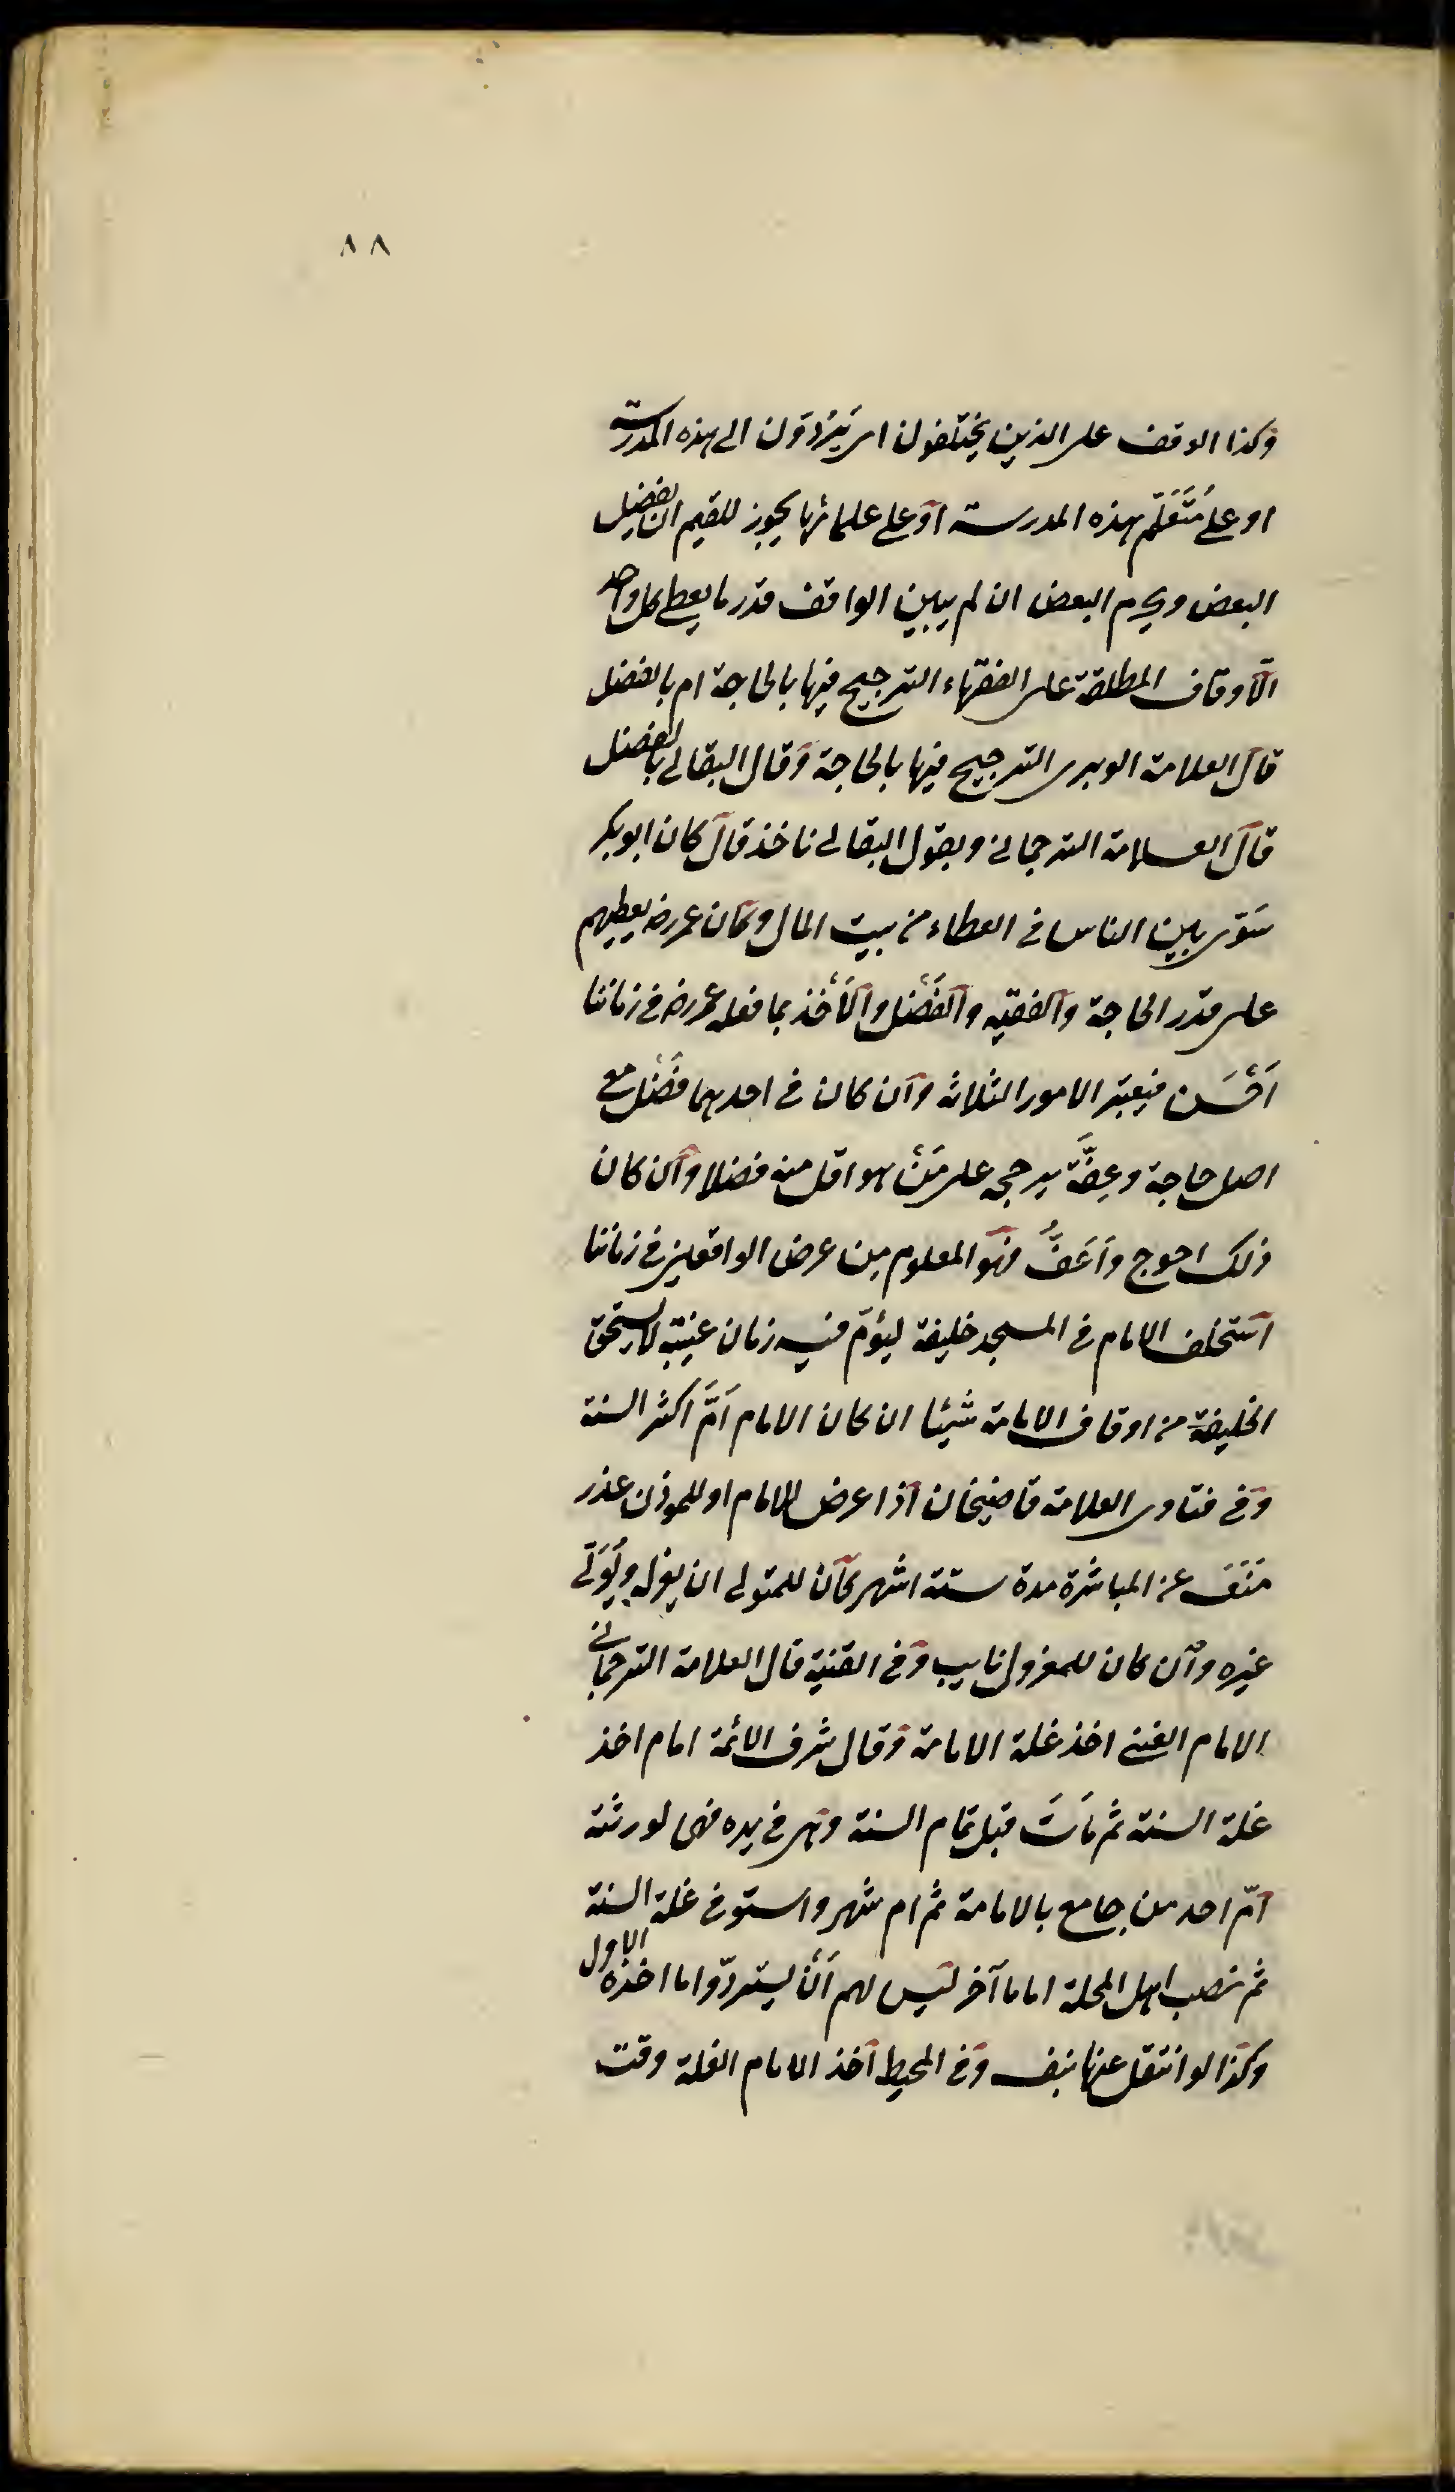 ٨٨
وكذا الوقف على الذين يختلفون اى يتردّدون الى هذه المدرسة
او على مُتَعَلّم هذه المدرسة او على علمائها يجوز للقيم ان يفضل
البعض ويحرم البعض ان لم يبين الواقف قدر ما يعطى كل واحد
الاوقاف المطلقة على الفقهاء الترجيح فيها بالحاجة ام بالفضل
قال العلامة الوبرى الترجيح فيها بالحاجة وقال البقالى بالفضل
قال العلامة الترجمانى وبقول البقالى ناخذ قال كان ابو بكر
سَوّى بين الناس فى العطاء من بيت المال وكان عمر رض يعطيهم
على قدر الحاجة والفقيه والفَضْل والاَخْذ بما فعله عمر رض فى زماننا
اَحْسَن فيعتبر الامور الثلاثة وان كان فى احدهما فَضْل مع
اصل حاجة وعِفَّة يرجح على مَنْ هو اقل منه فضلا وان كان
ذلك احوج واَعَفُّ فهو المعلوم من عرض الواقفين فى زماننا
استخلف الامام فى المسجد خليفة ليؤمّ فيه زمان غيبته لا يستحق
الخليفة من اوقاف الامامة شيئا ان كان الامام اَمَّ اكثر السنة
وفى فتاوى العلامة قاضيخان اذا عرض للامام او للموذن عذر
مَنَعَ عن المباشرة مدة ستة اشهر كان للمتولى ان يعزله ويُوَلّى
غيره وان كان للمعزول نايب وفى القنية قال العلامة الترجمانى
الامام الغنى اخذ غلة الامامة وقال شرف الائمة امام اخذ
غلة السنة ثم مَاتَ قبل تمام السنة وهى فى يده فهى لورثته
امّ احد من جامع بالامامة ثم ام شهر واستوفى غلة السنة
ثم نصب اهل المحلة اماما آخر ليس لهم اَنْ يستردّوا ما اخذه الاول
وكذا لو انتقل عنها بنفسه وفى المحيط اخذ الامام الغلة وقت